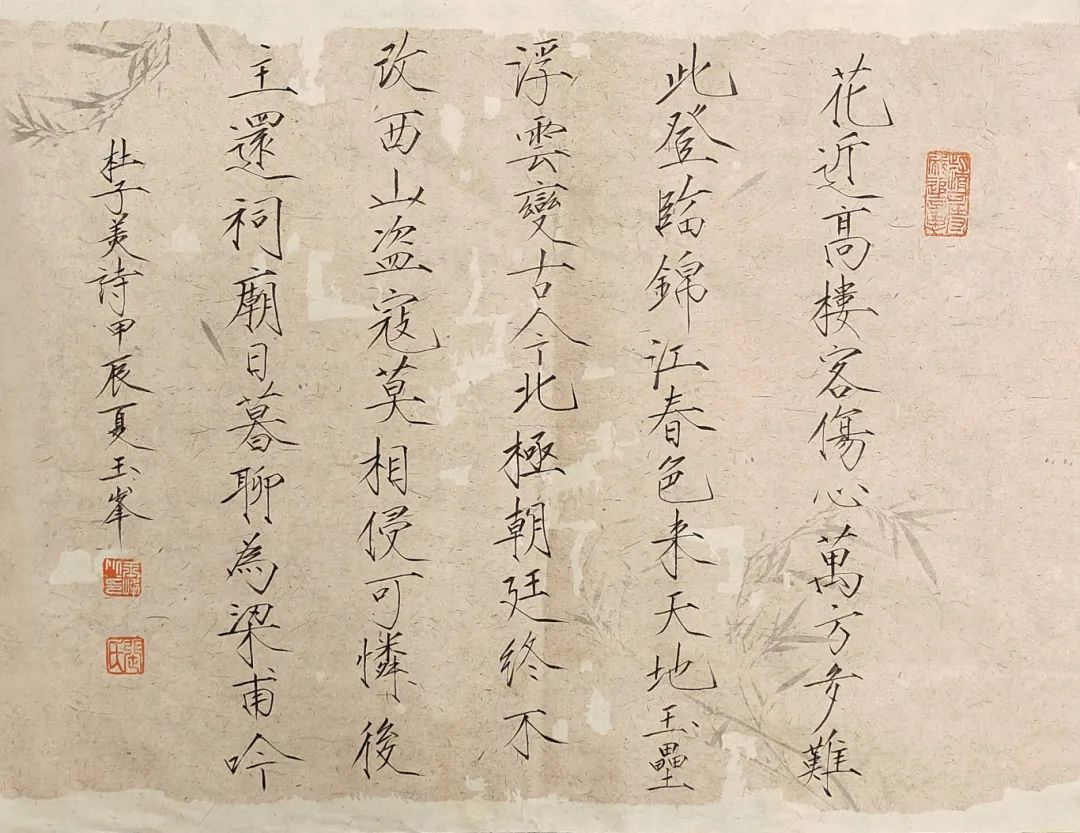 花近高樓客傷心萬方多難
此登臨錦江春色來天地玉壘
浮雲變古今北極朝廷終不
改西山盜寇莫相侵可憐後
主還祠廟日暮聊為梁甫吟
杜子美詩甲辰夏玉峯
張氏